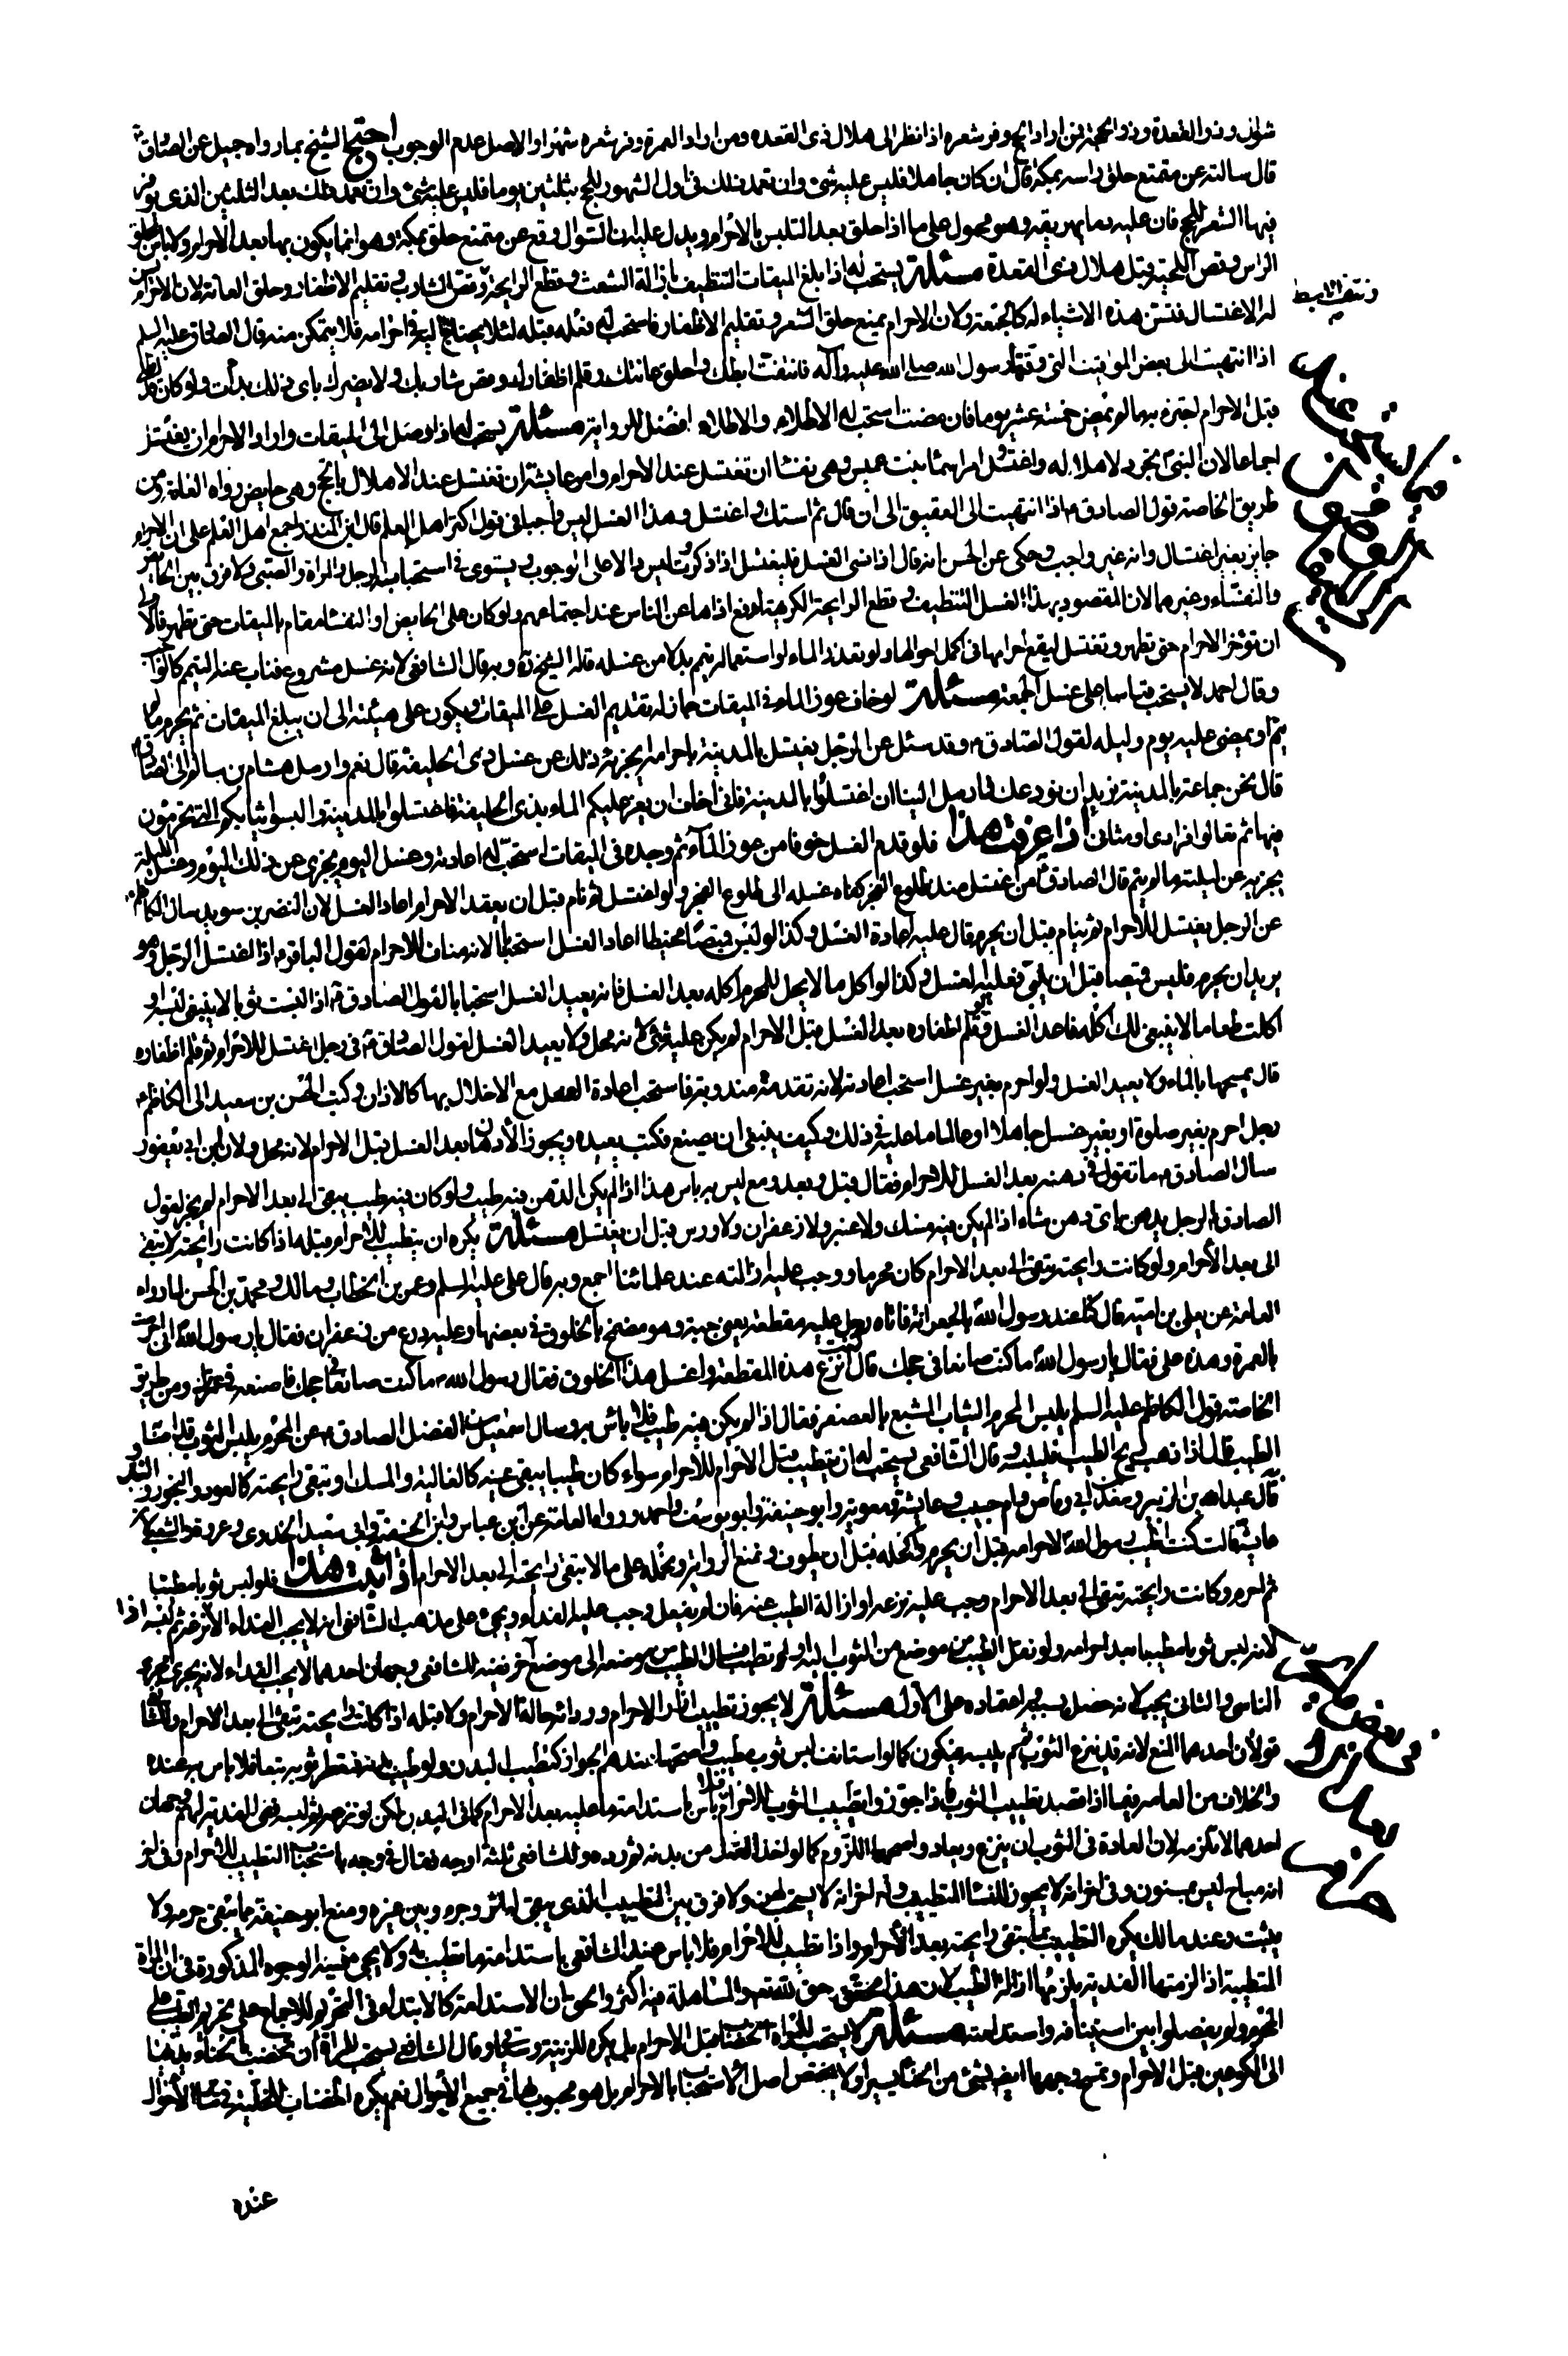 شوال وذو القعدة وذو الحجة فمن اراد الحج وفر شعره اذا نظر الى هلال ذى القعده ومن اراد العمرة وفر شعره شهرا والاصل عدم الوجوب احتج الشيخ بما رواه جميل عن الصادق
قال سالته عن متمتع حلق راسه بمكة قال ان كان جاهلا فليس عليه شئ وان تعمد ذلك فى اول الشهور للحج بثلثين يوما فليس عليه شئ وان تعمد ذلك بعد الثلثين الذى يوفر
فيها الشعر للحج فان عليه دما يهريقه وهو محمول على ما اذا حلق بعد التلبس بالاحرام ويدل عليه ان السوال وقع عن متمتع حلق بمكة وهو انما يكون بها بعد الاحرام ولا باس بحلق
الراس وقص اللحية قبل هلال ذى القعدة مسئلة يستحب له اذا بلغ الميقات التنظيف بازالة الشعث وقطع الرايحة وقص الشارب وتقليم الاظفار وحلق العانة لان الاحرام يسن
له الاغتسال فتسن هذه الاشياء له كالجمعة ولان الاحرام يمنع حلق الشعر وتقليم الاظفار فاستحب له فعله قبله لئلا يحتاج اليه فى احرامه فلا يتمكن منه قال الصادق عليه السلم
اذا انتهيت الى بعض المواقيت التى وقتها رسول الله صلى الله عليه وآله فانتف ابطك واحلق عانتك وقلم اظفارك وقص شاربك ولا يضرك باى ذلك بدأت ولو كان قد اطلى
قبل الاحرام اجتزء به ما لم يمض خمسة عشر يوما فان مضت استحب له الاطلاء والاطلاء افضل للرواية مسئلة يستحب له اذا وصل الى الميقات واراد الاحرام ان يغتسل
اجماعا لان النبى تجرد لاهلاله واغتسل وامر اسماء بنت عميس وهى نفسا ان تغتسل عند الاحرام وامر عايشة ان تغتسل عند الاهلال بالحج وهى حايض رواه العامة ومن
طريق الخاصة قول الصادق اذا انتهيت الى العقيق الى ان قال ثم استك واغتسل وهذا الغسل ليس واجبا فى قول اكثر اهل العلم قال ابن المنذر اجمع اهل العلم على ان الاحرام
جايز بغير اغتسال وانه غير واجب وحكى عن الحسن انه قال اذا نسى الغسل فليغتسل اذا ذكر وليس دالا على الوجوب ويستوى فى استحبابه الرجل والمراة والصبى ولا فرق بين الحايض
والنفساء وغيرهما لان المقصود بهذا الغسل التنظيف وقطع الرايحة الكريهة لدفع اذاها عن الناس عند اجتماعهم ولو كان على الحايض او النفسا مقام بالميقات حتى تطهر فالاولى
ان تؤخر الاحرام حتى تطهر وتغتسل ليقع احرامها فى اكمل احوالها ولو تعذر الماء لو استعماله تيمم بدلا من غسله قاله الشيخ ره وبه قال الشافعى لانه غسل مشروع فناب عنه التيمم كالواجب
وقال احمد لا يستحب قياسا على غسل الجمعة مسئلة لو خاف عوز الماء فى الميقات جاز له تقديم الغسل على الميقات ويكون على هيئته الى ان يبلغ الميقات ثم يحرم ما لم
ينم او يمضى عليه يوم وليله لقول الصادق وقد سئل عن الرجل يغتسل بالمدينة لاحرامه ايجزيه ذلك عن غسل ذى الحليفة قال نعم وارسل هشام بن سالم الى الصادق
قال نحن جماعة بالمدينة نريد ان نودعك فارسل الينا ان اغتسلوا بالمدينة فانى اخاف ان يعز عليكم الماء بذى الحليفة فاغتسلوا بالمدينة والبسوا ثيابكم التى تحرمون
فيها ثم تعالوا فرادى او مثانى اذا عرفت هذا فلو قدم الغسل خوفا من عوز الماء ثم وجده فى الميقات استحب له اعادته وغسل اليوم يجزى عن ذلك اليوم وغسل الليلة
يجزيه عن ليلته ما لم ينم قال الصادق من اغتسل عند طلوع الفجر كفاه غسله الى طلوع الفجر ولو اغتسل ثم نام قبل ان يعقد الاحرام اعاد الغسل لان النضر بن سويد سال الكاظم
عن الرجل يغتسل للاحرام ثم ينام قبل ان يحرم قال عليه اعادة الغسل وكذا لو لبس قميصا مخيطا اعاد الغسل استحبابا لانه مناف للاحرام لقول الباقر اذا اغتسل الرجل وهو
يريد ان يحرم فلبس قميصا قبل ان يلبى فعليه الغسل وكذا لو اكل ما لا يحل للمحرم اكله بعد الغسل فانه يعيد الغسل استحبابا لقول الصادق اذا لبست ثوبا لا ينبغى لبسه او
اكلت طعاما لا ينبغى لك اكله فاعد الغسل ولو قلم اظفاره بعد الغسل قبل الاحرام لم يكن عليه شئ لانه محل ولا يعيد الغسل لقول الصادق فى رجل اغتسل للاحرام ثم قلم اظفاره
قال يمسحها بالماء ولا يعيد الغسل ولو احرم بغير غسل استحب اعادته لانه تقدمة مندوبة فاستحب اعادة الفعل مع الاخلال بها كالاذان وكتب الحسن بن سعيد الى الكاظم
رجل احرم بغير صلوة او بغير غسل جاهلا او عالما ما عليه فى ذلك وكيف ينبغى ان يصنع فكتب يعيده ويجوز الادهان بعد الغسل قبل الاحرام لانه محل ولان ابن ابى يعفور
سال الصادق ما تقول فى دهنه بعد الغسل للاحرام فقال قبل وبعد ومع ليس به باس هذا اذا لم يكن الدهن فيه طيب ولو كان فيه طيب يبقى الى بعد الاحرام لم يجز لقول
الصادق الرجل يدهن باى دهن شاء اذا لم يكن فيه مسك ولا عنبر ولا زعفران ولا ورس قبل ان يغتسل مسئلة يكره ان يتطيب للاحرام قبله اذا كانت رايحته لا تبقى
الى بعد الاحرام ولو كانت رايحته تبقى الى بعد الاحرام كان محرما ووجب عليه ازالته عند علمائنا اجمع وبه قال على عليه السلم وعمر بن الخطاب ومالك ومحمد بن الحسن لما رواه
العامة عن يعلى بن امية قال كنا عند رسول الله بالجعرانة فاتاه رجل عليه مقطعة يعنى جبة وهو مضمخ بالخلوق فى بعضها وعليه ردع من زعفران فقال يا رسول الله انى احرمت
بالعمرة وهذه على فقال يا رسول الله ما كنت صانعا فى حجك قال كنت انزع هذه المقطعة واغسل هذا الخلوق فقال رسول الله ما كنت صانعا فى حجك فاصنعه فى عمرتك ومن طريق
الخاصة قول الكاظم عليه السلم يلبس المحرم الثياب المشبع بالعصفر فقال اذا لم يكن فيه طيب فلا باس به وسال اسمعيل بن الفضل الصادق عن المحرم يلبس الثوب قد اصابه
الطيب قال اذا ذهب ريح الطيب فليلبسه وقال الشافعى يستحب له ان يتطيب قبل الاحرام للاحرام سواء كان طيبا يبقى عينه كالغالية والمسك او تبقى رايحته كالعود والبخور والند
قال عبدالله بن الزبير وسعد بن ابى وقاص وام حبيبة وعايشة ومعوية وابو حنيفة وابو يوسف واحمد ورواه العامة عن ابن عباس وابن الحنفية وابى سعيد الخدرى وعروة والشعبى لان
عايشة قالت كنت اطيب رسول الله لاحرامه قبل ان يحرم ولحله قبل ان يطوف ونمنع الرواية ونحمله على ما لا تبقى رايحته الى بعد الاحرام اذا ثبت هذا فلو لبس ثوبا مطيبا
ثم احرم وكانت رايحته تبقى الى بعد الاحرام وجب عليه نزعه او ازالة الطيب عنه فان لم يفعل وجب عليه الفداء ويجئ على مذهب الشافعى انه لا يجب الفداء الا ان نزعه ثم لبسه اذا
لانه لبس ثوبا مطيبا بعد احرامه ولو نقل الطيب من موضع من الثوب اليه او تطيب فسال الطيب من موضعه الى موضع آخر ففيه للشافعى وجهان احدهما لا يجب الفداء لانه يجرى مجرى
الناسى والثانى يجب لانه حصل بسببه واعتماده على الاول مسئلة لا يجوز تطييب ازار الاحرام وردائه حالة الاحرام ولا قبله اذا كانت رايحته تبقى الى بعد الاحرام وللشافعى
قولان احدهما المنع لانه قد ينزع الثوب ثم يلبسه فيكون كما لو استانف لبس ثوب مطيب واصحهما عندهم الجواز كتطييب البدن ولو طيب بدنه فتعطر ثوبه تبعا فلا باس به عنده
والخلاف من العامه فيما اذا قصد تطييب الثوب فاذا جوزوا تطييب الثوب للاحرام فلا باس باستدامة ما عليه بعد الاحرام كما فى البدن لكن لو نزعه ثم لبسه ففى الفدية لهم وجهان
احدهما لا تلزمه لان العادة فى الثوب ان ينزع ويعاد واصحهما اللزوم كما لو اخذ الطيب من بدنه ثم رده وللشافعى ثلثة اوجه فقال فى وجه باستحباب التطيب للاحرام وفى اخر
انه مباح ليس بمسنون وفى اخر انه لا يجوز للنساء التطيب وله اخر انه لا يستحب لهن ولا فرق بين التطيب الذى يبقى له اثر وجرم وبين غيره ومنع ابو حنيفة مما يبقى جرمه ولا
يثبت وعند مالك يكره التطيب بما تبقى رايحته بعد الاحرام واذا تطيب للاحرام فلا باس عند الشافعى باستدامة ما تطيب به ولا يجئ فيه الوجوه المذكورة فى ان المراة
المتطيبة اذا لزمتها الفدية يلزمها ازالة الطيب لان هذا محض حق الله تعالى والمساهلة فيه اكثر والحق ان الاستدامة كالابتداء فى التحريم للاجماع على تحريم الطيب على
المحرم ولم يفصلوا بين استينافه واستدامته مسئلة لا يستحب للمراة الخضاب قبل الاحرام بل يكره للزينة وقال الشافعى يستحب للمراة ان تخضب بالحناء يديها
الى الكوعين قبل الاحرام وتمسح وجهها ايضا بشئ من الحناء يسيرا ولا يختص اصل الاستحباب بالاحرام بل هو محبوب لها فى جميع الاحوال نعم يكره الخضاب للخلية فى ساير الاحوال
ونتف الابط
عنده